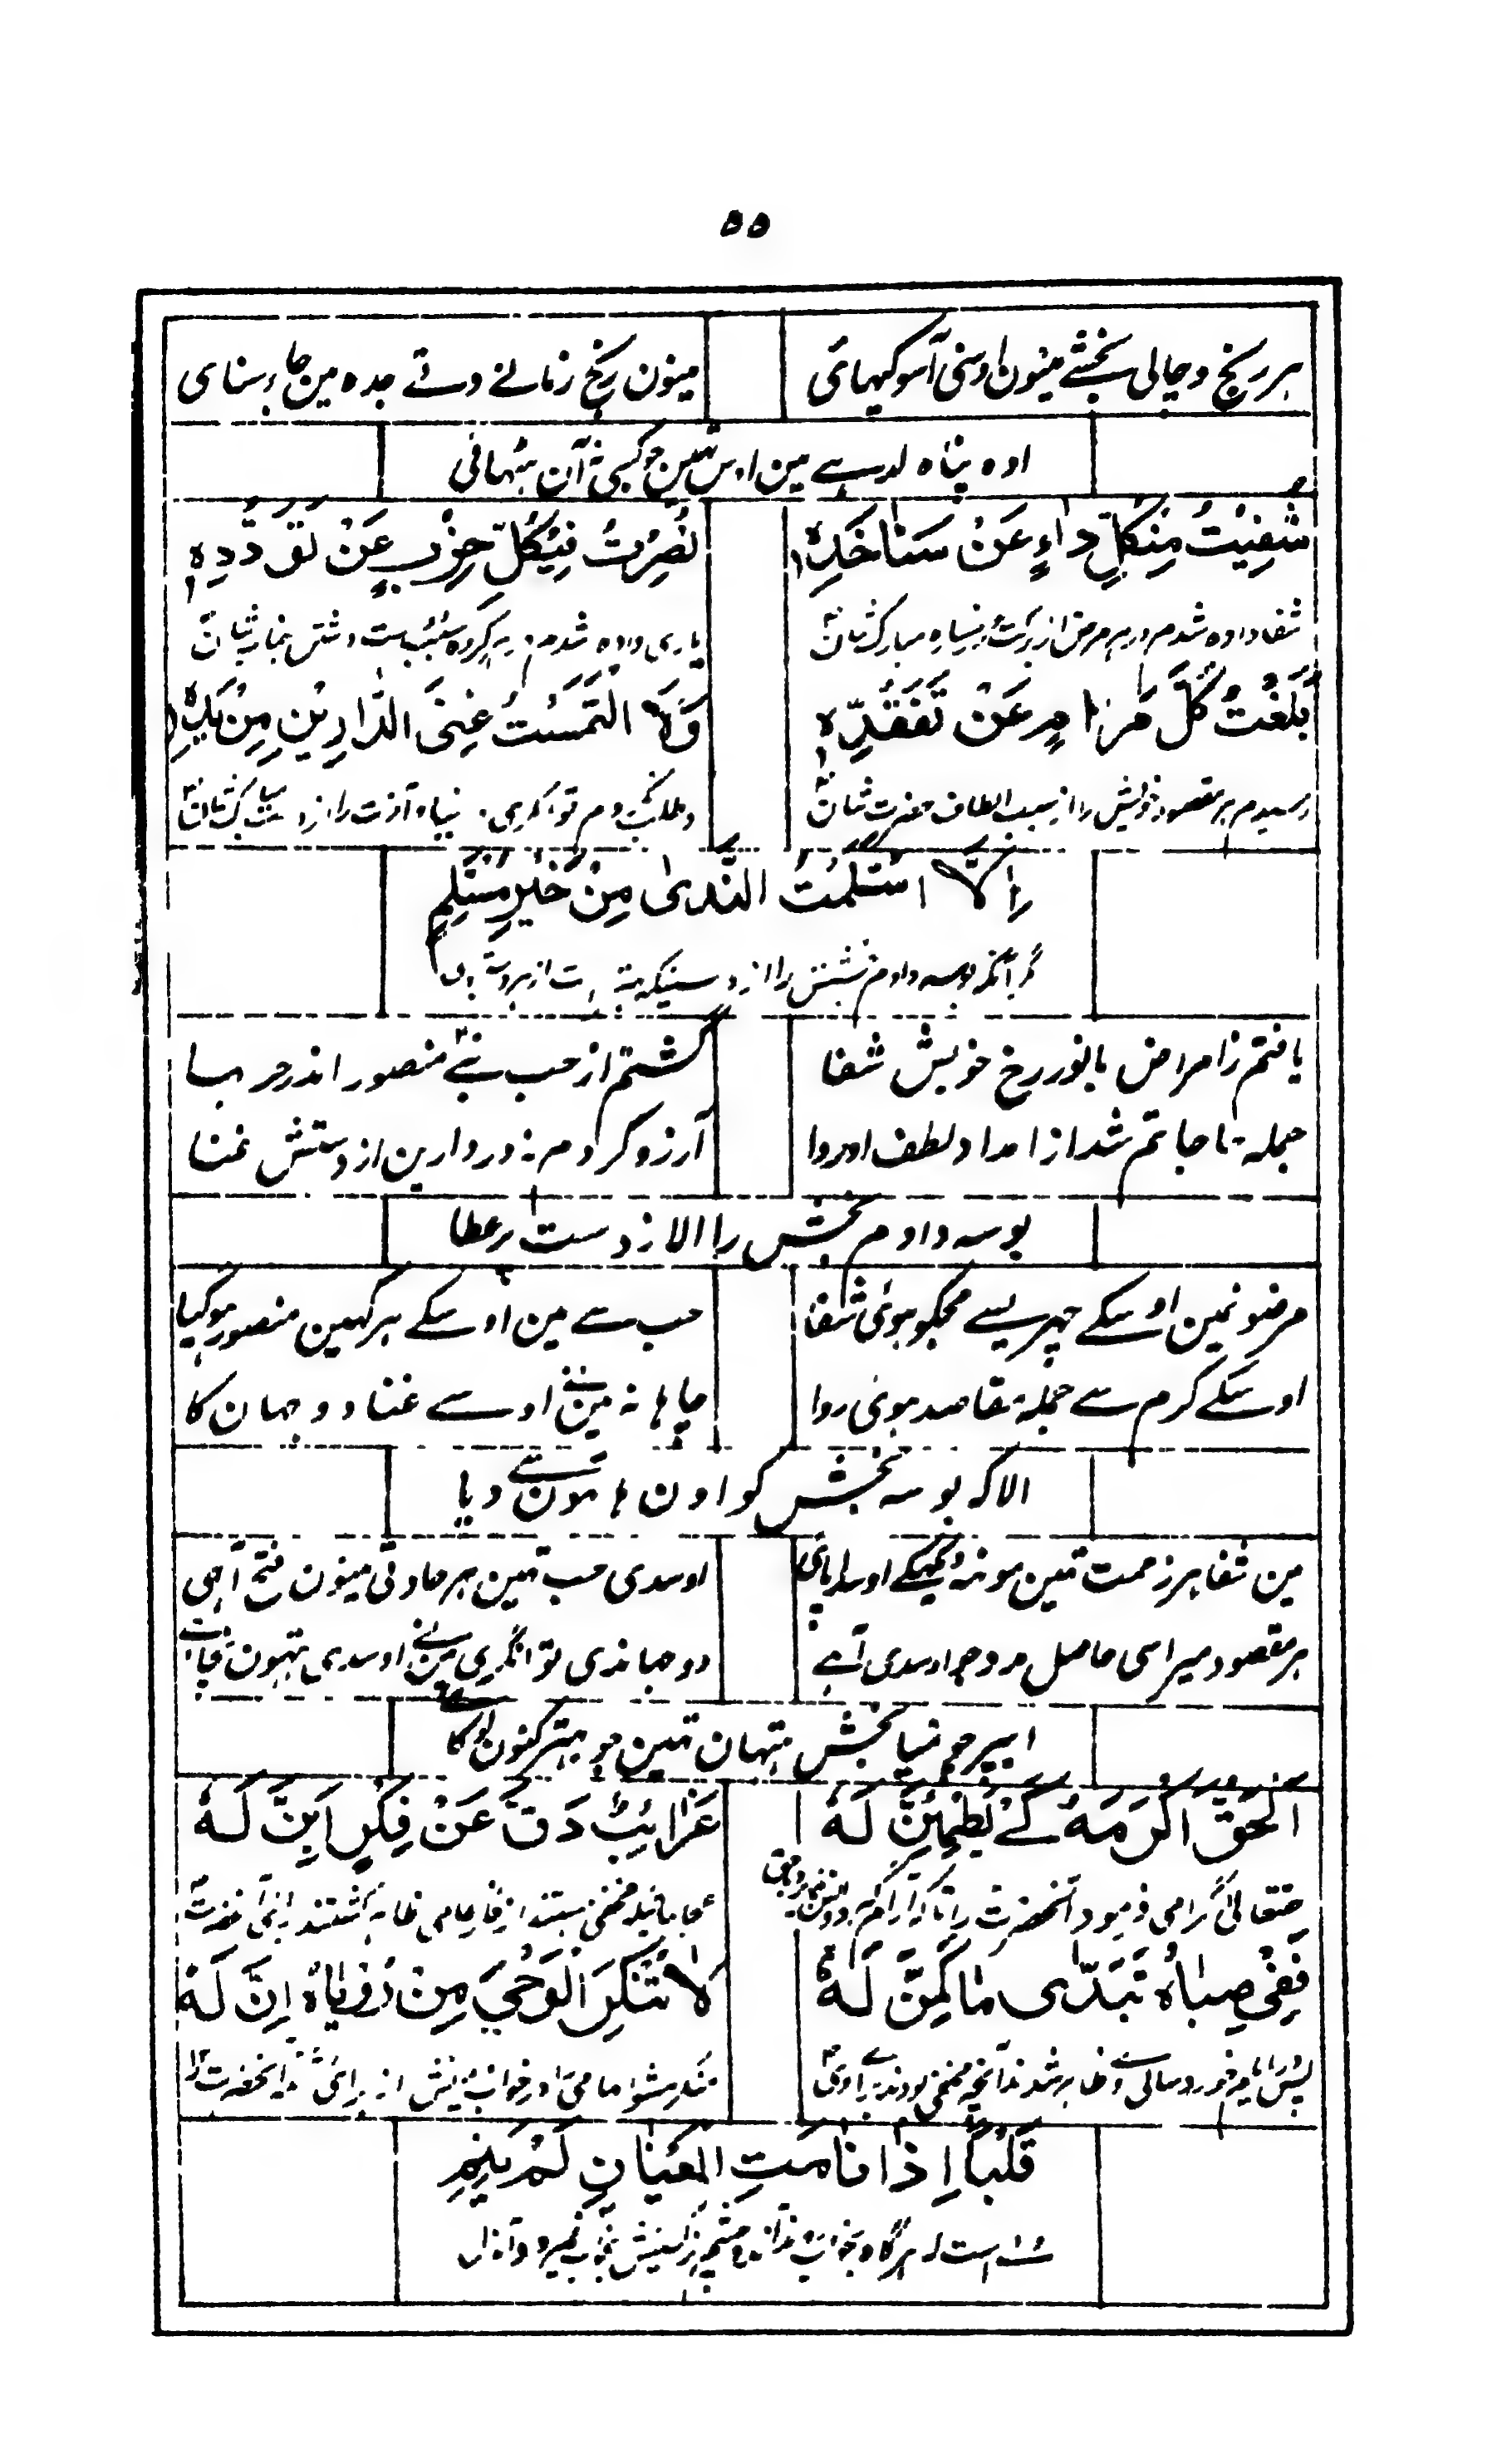 ۵۵
ہر رنج و جالی بخشے مینون اوسنی آسو کیہائی
مینون رنج زمانے دتے جدہ مین جاء سنای
اوہ پناہ لدہے مین اوس تہین جو کسی نہ آن بتہائی
شُفِیْتُ مِنْ کُلِّ دَاءٍ عَنْ سَنَا خَدِّهٖ
نُصِرْتُ فِیْ کُلِّ حِزْبٍ عَنْ تَوَدُّدِهٖ
شفا داده شدم در ہر مرض از برکت مبارک شان
یاری داده شدم ہر گروه بسبب دوست داشتن
بَلَغْتُ کُلَّ مَرَامٍ عَنْ تَفَقُّدِهٖ
وَلَا الْتَمَسْتُ غِنَی الدَّارَیْنِ مِنْ یَدِهٖ
رسیدم ہر مقصود خویش را از سبب الطاف حضرت شان
و طلب نکردم تونگری دنیا و آخرت را از دست مبارک شان
اِلَّا اسْتَلَمْتُ النَّدٰی مِنْ خَیْرِ مُسْتَلِمٍ
مگر آنکه بوسه دادم بخشش را از دستیکه
یافتم ز امراض با نور رخ خوبش شفا
گشتم از حب نبی منصور اندر حربہا
جمله حاجاتم شد از امداد لطف او روا
آرزو کردم نہ در دارین از دستش غنا
بوسه دادم بخشش را الا ز دست پر عطا
مرضونمین اوسکے چہریسے مجکو ہوئی شفا
حب سے مین اوسکے ہر کہین منصور ہو گیا
اوسکے کرم سے جملہ مقاصد ہوئی روا
چاہا نہ مینے اوسے غنا دو جہان کا
الا کہ بوسہ بخشش کو اون ہاتہون سے دیا
مین شفا ہر زحمت تہین مونہ دیکہیکے اوسدا پائی
اوسدی حب تہین ہر جا دتی مینون فتح آلہی
ہر مقصود میرا سی حاصل مدد جو اوسدی آہے
دو جہاندی توانگری مینے اوسدی ہتہون
ایپر جو بخشش ہتہان تہین جو بہتر کنون لوکا
اَلْحَقُّ اَکْرَمَهٗ کَےْ یَطْمَئِنَّ لَهٗ
غَرَائِبُ دَقَّ عَنْ فِکْرٍ اَبَنَّ لَهٗ
حقتعالی گرامی فرمود آنحضرت را تا کہ آرام گیرد
عجائبات کہ مخفی ہستند از عامی ظاہر گشتند برای آنحضرت
فَفِیْ صِبَاهُ تَبَدّٰی مَا کَمِنَّ لَهٗ
لَا تُنْکِرِ الْوَحْیَ مِنْ رُؤْیَاهُ اِنَّ لَهٗ
پس در ایام خورد سالی ظاہر شدند آنچہ مخفی بودند برای
منکر مشو در خواب بینش از برای آنحضرت را
قَلْبًا اِذَا نَامَتِ الْعَیْنَانِ لَمْ یَنَمِ
است کہ ہرگاه بخواب چشم نمیرود آن دل